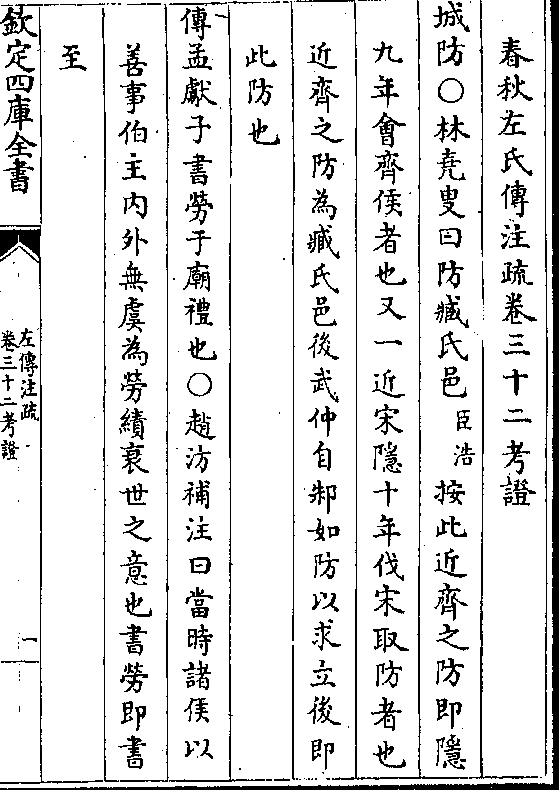 春秋左氏傳注疏卷三十二考證
城防〇林堯叟曰防臧氏邑臣浩按此近齊之防即隱
九年會齊侯者也又一近宋隱十年伐宋取防者也
近齊之防為臧氏邑後武仲自邾如防以求立後即
此防也
傳孟獻子書勞于廟禮也〇趙汸補注曰當時諸侯以
善事伯主內外無虞為勞績衰世之意也書勞即書
至
欽定四庫全書
左傳注疏
卷三十二考證
一